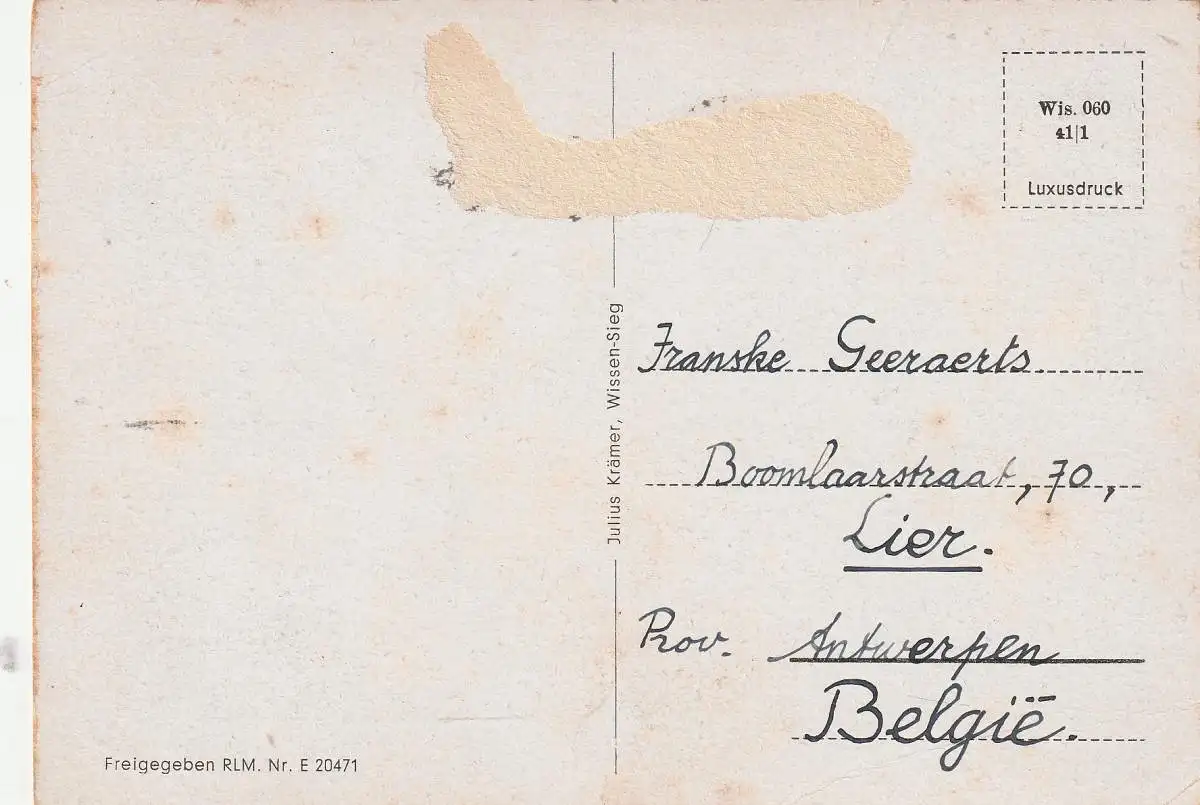 Wis. 060
41|1
Luxusdruck
Julius Krämer, Wissen-Sieg
Franske Geeraerts.
Boomlaarstraat, 70,
Lier.
Prov. Antwerpen
België.
Freigegeben RLM. Nr. E 20471